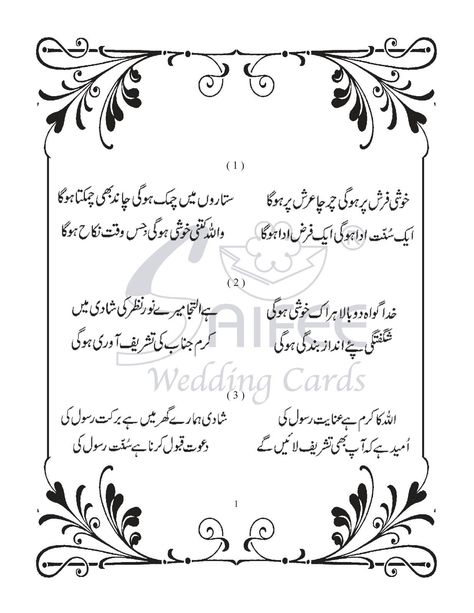 (1)
خوشی فرش پر ہوگی چرچا عرش پر ہوگا ستاروں میں چمک ہوگی چاند بھی چمکتا ہوگا
ایک سُنّت ادا ہوگی ایک فرض ادا ہوگا واللہ کتنی خوشی ہوگی جس وقت نکاح ہوگا
(2)
خدا گواہ دوبالا ہر اک خوشی ہوگی ہے التجا میرے نورِ نظر کی شادی میں
شگفتگی پئے انداز بندگی ہوگی کرم جناب کی تشریف آوری ہوگی
SAIFEE
Wedding Cards
(3)
اللہ کا کرم ہے عنایت رسول کی شادی ہمارے گھر میں ہے برکت رسول کی
اُمید ہے کہ آپ بھی تشریف لائیں گے دعوت قبول کرنا ہے سُنّت رسول کی
1